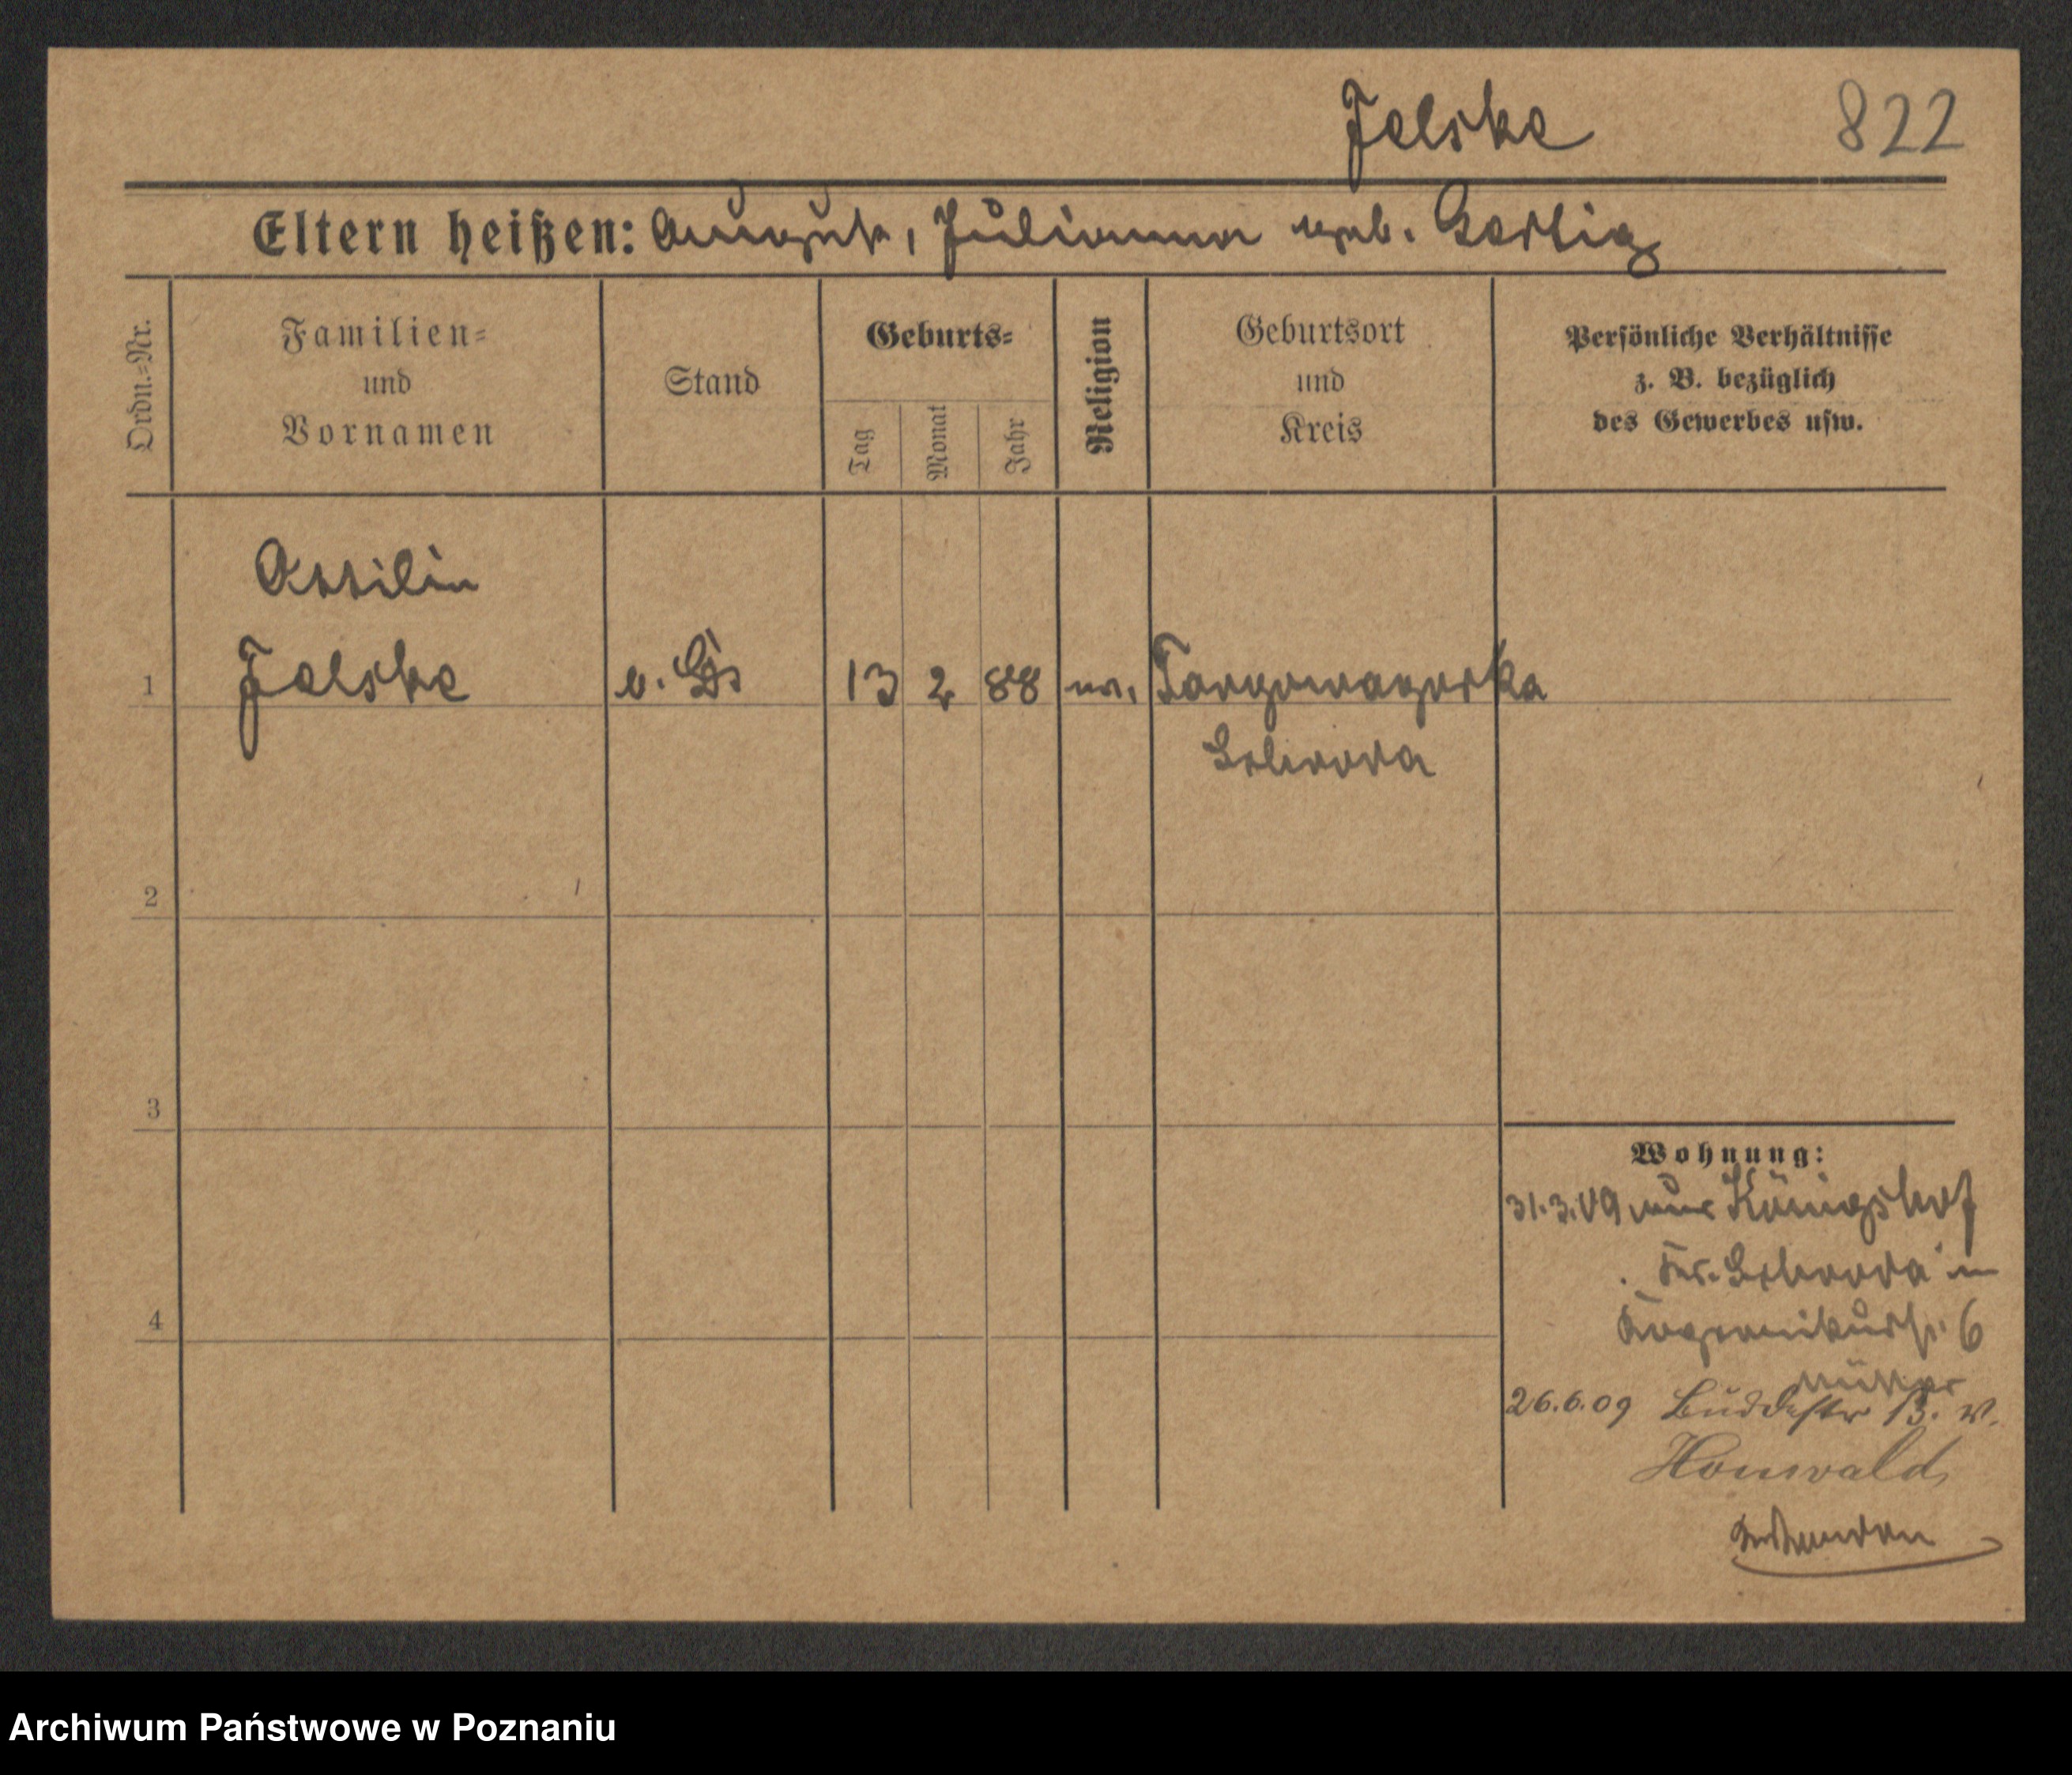 Jelske 822
Eltern heißen: August, Julianna geb. Hartig
Ordn.=Nr.
Familien=
und
Vornamen
Stand
Geburts=
Tag
Monat
Jahr
Religion
Geburtsort
und
Kreis
Persönliche Verhältnisse
z. B. bezüglich
des Gewerbes usw.
Ottilie
1 Jelske 13 2 88 ev. Targowagorka
Schroda
2
3
4
Wohnung:
31.3.09 aus Königshof
Kr. Schroda in
Kopernikusstr. 6
Müller
26.6.09 Buddestr 13. b.
Honwald